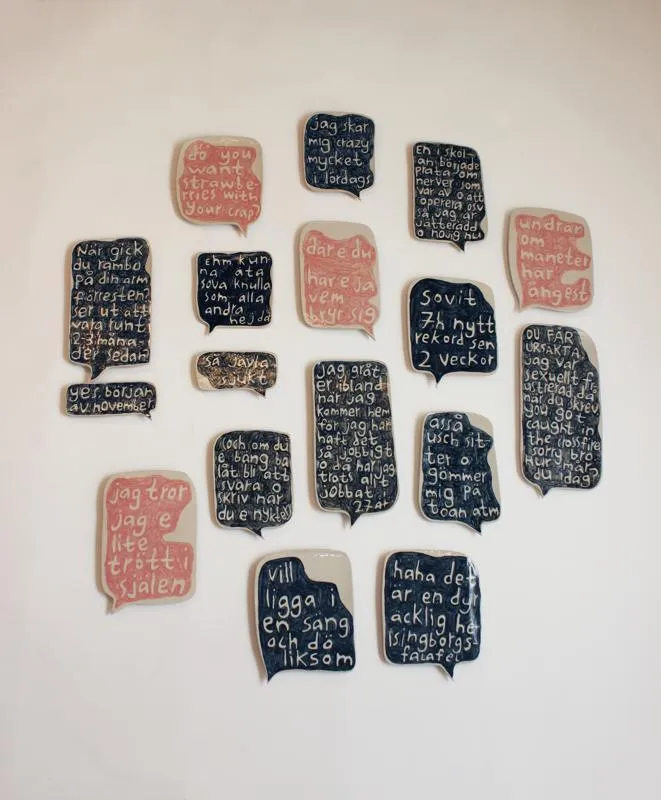 jag skar
mig crazy
mycket
i lördags
do you
want
strawbe-
rries with
your crap?
En i skol-
an började
prata om
nerver som
var av o att
operera osv
så jag är
jätterädd
o hövig nu
undrar
om
maneter
har
ångest
När gick
du rambo
på din arm
förresten?
ser ut att
vara runt
2-3 måna-
der sedan
Ehm kun
na äta
sova knulla
som alla
andra
hej då
där e du
här e ja
vem
bryr sig
sovit
7h nytt
rekord sen
2 veckor
yes. början
av november
så jävla
sjukt
DU FÅR
URSÄKTA
jag var
sexuellt fr
ustrerad då
när du skrev
you got
caught in
the crossfire
sorry bro
hur mår
du idag?
jag gråt
er ibland
när jag
kommer hem
för jag har
haft det
så jobbigt
o då har jag
trots allt
jobbat
27 år
åsså
usch sit-
ter o
gömmer
mig på
toan atm
(och om du
e bäng ba
låt bli att
svara o
skriv när
du e nykter
jag tror
jag e
lite
trött i
själen
vill
ligga i
en säng
och dö
liksom
haha det
är en du
äcklig he
lsingborgs-
falafel